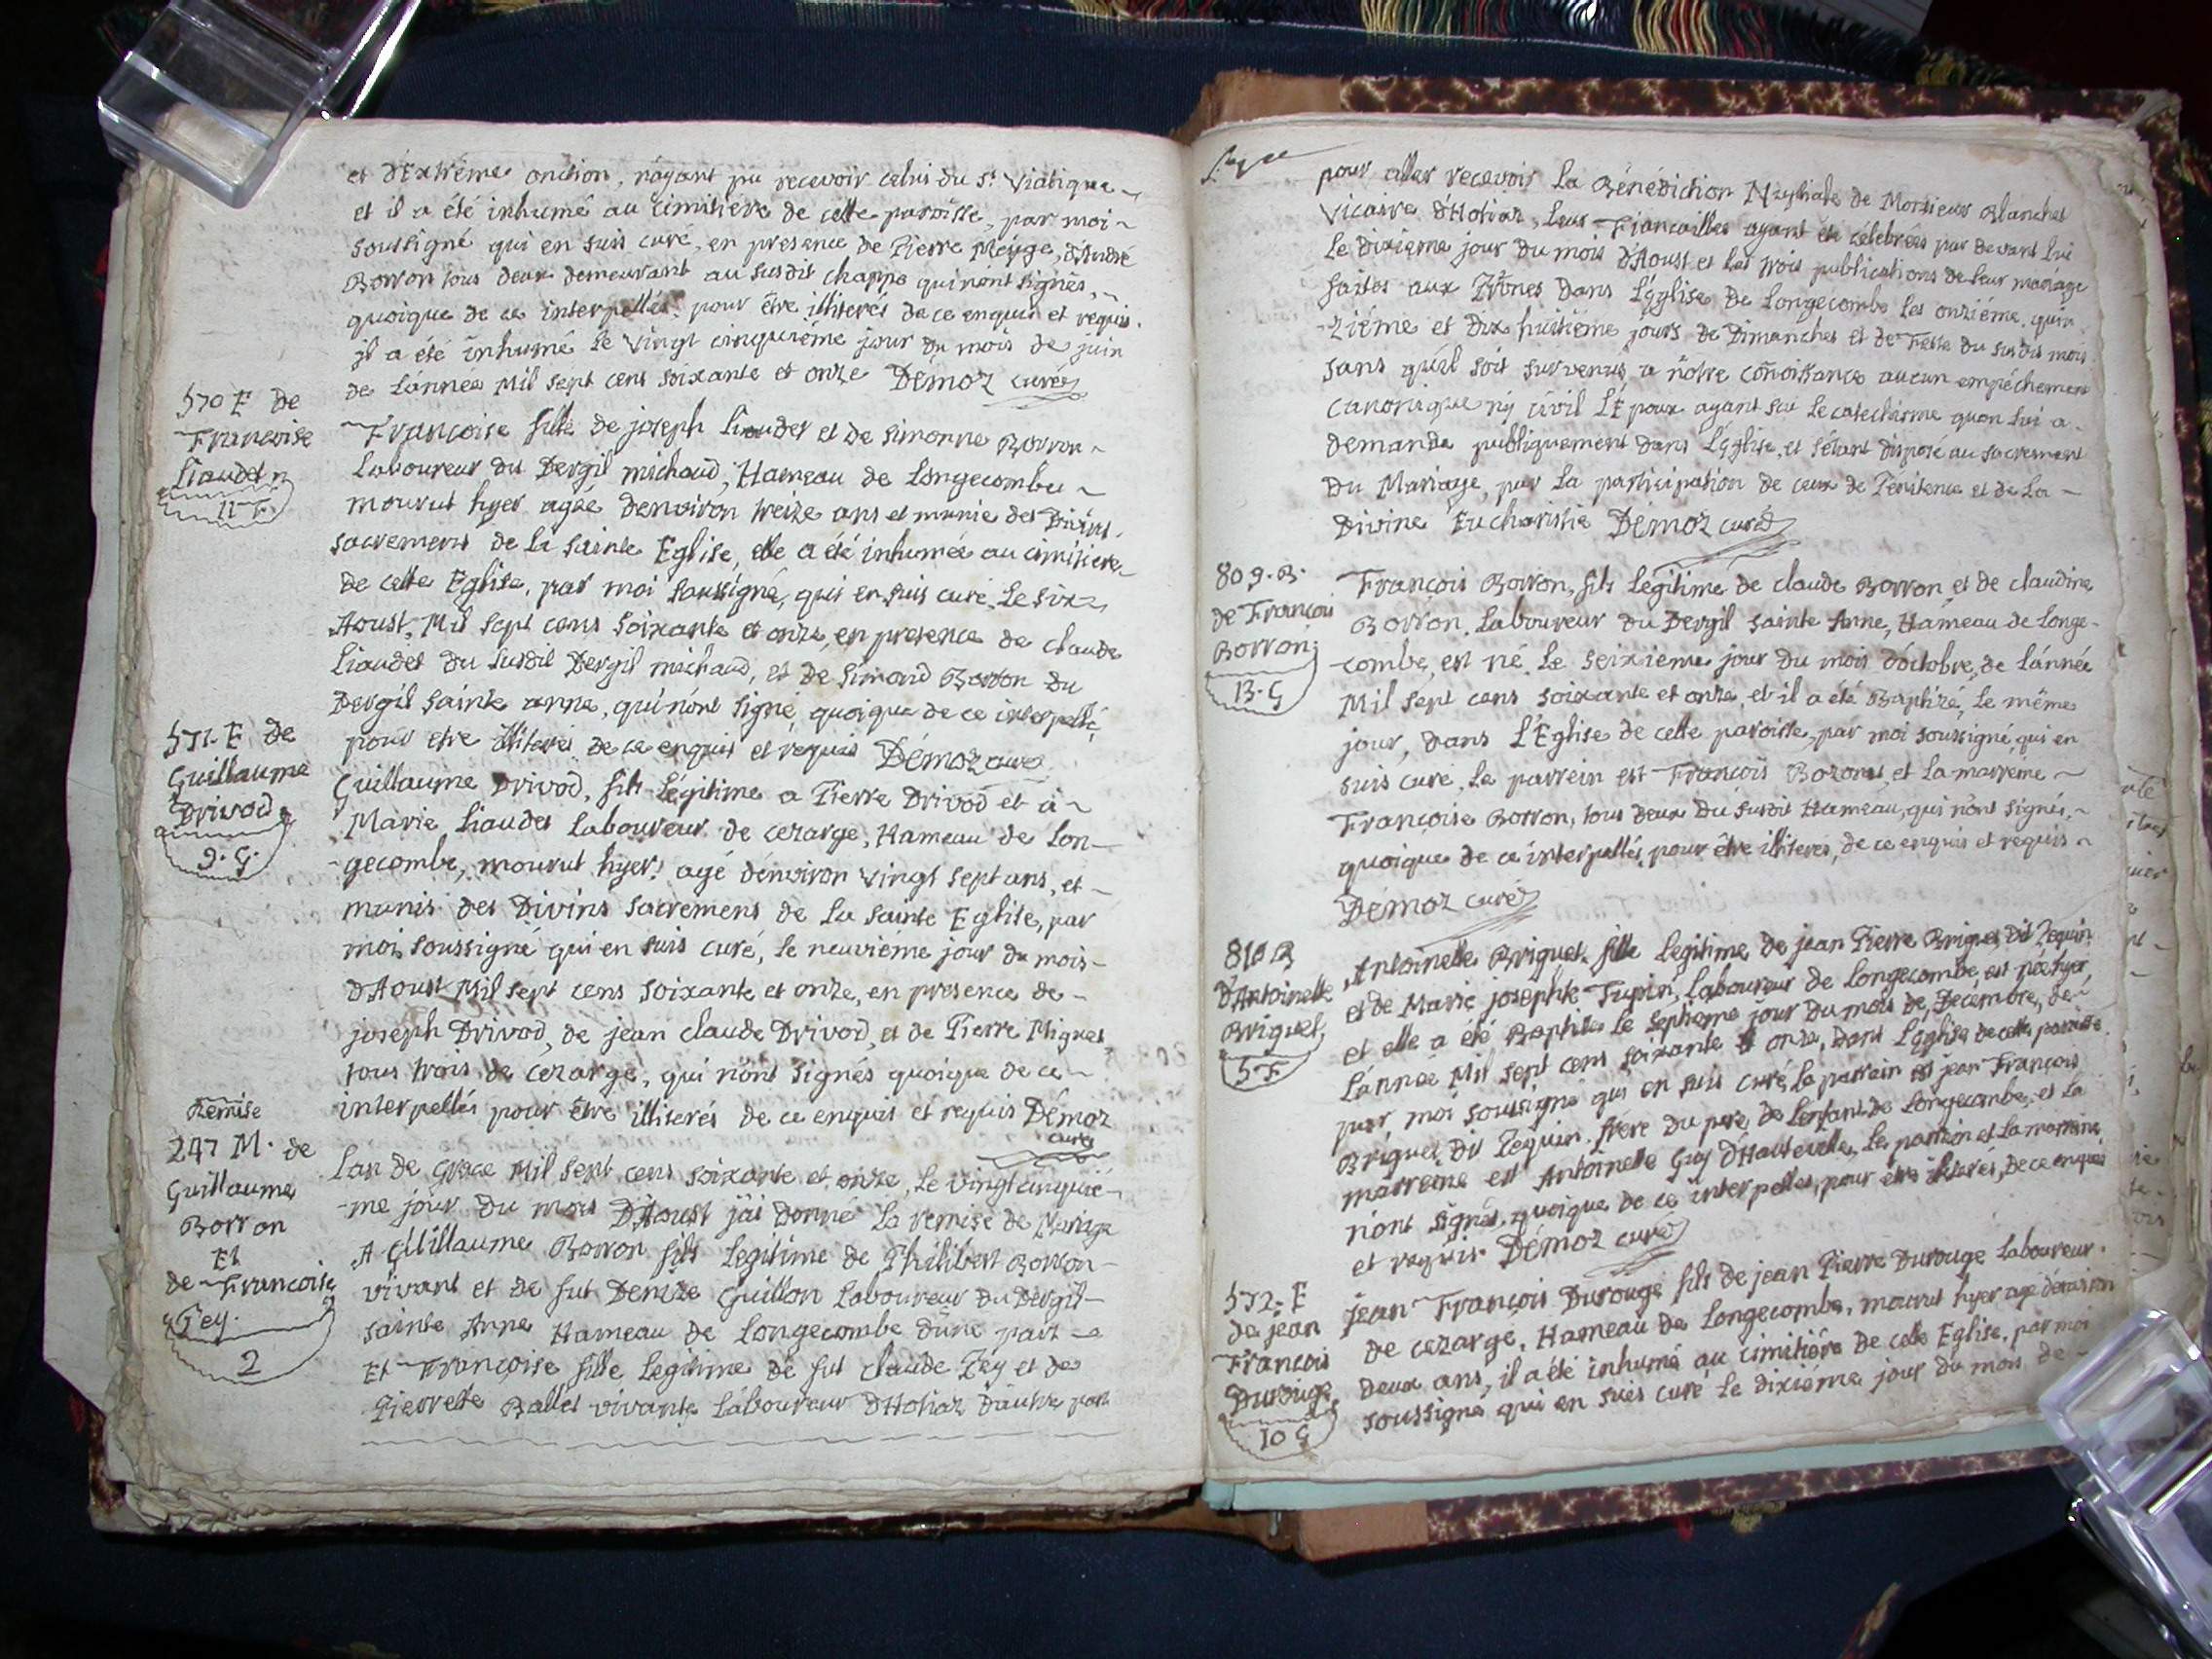 et d'Extrême onction, n'ayant pu recevoir celui du St Viatique
et il a été inhumé au cimitiere de cette paroisse, par moi
soussigné qui en suis curé, en presence de Pierre Meyge, d'André
Borron tous deux demeurant au susdit chappe qui n'ont signés,
quoique de ce interpellés, pour être illiterés de ce enquis et requis.
jl a été inhumé le vingt cinquiéme jour du mois de juin
de L'année Mil sept cens soixante et onze Démoz curé
570 E de
Françoise
Liaudet
11 F.
Françoise fille de joseph Liaudet et de Simonne Borron
Laboureur du Dergil michaud, Hameau de Longecombe
mourut hyer agée denviron treize ans et munie des Divins
sacremens de la Sainte Eglise, elle a été inhumée au cimitiere
de cette Eglise, par moi soussigné, qui en suis curé Le six
Aoust, Mil sept cens soixante et onze, en presence de claude
Liaudet du susdit Dergil michaud, et de Simond Borron du
Dergil sainte anne, qui n'ont signé quoique de ce interpellé
pour etre illiterés de ce enquis et requis Démoz curé
571. E de
Guillaume
Drivod
9. G.
Guillaume Drivod, fils Légitime a Pierre Drivod et à
Marie Liaudet Laboureur de cezarge, Hameau de Lon-
-gecombe, mourut hyer agé d'environ vingt sept ans, et
munis des Divins sacremens de La Sainte Eglise, par
moi soussigné qui en suis curé, le neuviéme jour du mois
d'Aoust Mil sept cens soixante et onze, en presence de
joseph Drivod, de jean claude Drivod, et de Pierre Miguet,
tous trois de cezarge, qui n'ont signés quoique de ce
interpellés pour être illiterés de ce enquis et requis Démoz
curé
Remise
247 M. de
Guillaume
Borron
Et
de Françoise
Pey.
2
Lan de Grace Mil Sept cens soixante et onze, Le vingt cinquié-
-me jour du mois D'Aoust j'ai donné la remise de Mariage
A Guillaume Borron fils Legitime de Philibert Borron
vivant et de fut Denize Guillon Laboureur du Dergil
Sainte Anne Hameau de Longecombe d'une part
Et Françoise fille Legitime de fut claude Pey et de
Pierrette Ballet vivante Laboureur D'Hotiaz D'autre part
pour aller recevoir La Bénédiction Nuptiale de Monsieur Blanchet
Vicaire d'Hotiaz, Leurs Fiancailles ayant été célebrées par devant Lui
Le dixieme jour du mois d'Aoust et les trois publications de leur mariage
faites aux Prônes Dans L'Eglise de Longecombe les onziéme, quin
-ziéme et Dix huitiéme jours de Dimanches et de Feste du susdit mois
sans qu'il soit survenus a nôtre coñoissance aucun empéchement
canonique ny civil L'Epoux ayant sû Le catechisme quon Lui a
demandé publiquement dans L'Eglise, et s'étant disposé au sacrement
Du Mariage, par La participation de ceux de Pénitence et de La
Divine Eucharistie Démoz curé
809. B.
de François
Borron
13. G
François Borron, fils Légitime de claude Borron et de claudine
Borron, Laboureur du Dergil sainte Anne, Hameau de Longe-
-combe, est né Le seixieme jour du mois d'octobre, de L'année
Mil sept cens soixante et onze, et il a été Baptizé, le même
jour, dans L'Eglise de cette paroisse, par moi soussigné, qui en
suis curé, Le parrein est François Bozon, et La marreine
Françoise Borron, tous deux Du susdit Hameau, qui n'ont signés,
quoique de ce interpellés, pour être illiterés, de ce enquis et requis
Démoz curé
810 B
D'Antoinette
Briguet,
5 F
Antoinette Briguet, fille Legitime de jean Pierre Briguet Dit Zequin
et de Marie josephte Tupin, Laboureur de Longecombe, est née hyer,
et elle a été Baptisée le septieme jour du mois de Decembre, de
L'année Mil sept cens soixante et onze, Dans L'Eglise de cette paroisse
par moi soussigné qui en suis curé, Le parrein est jean François
Briguet Dit Zequin, frére du pere de L'enfant de Longecombe, et La
marreine est Antoinette Guy d'Hauteville, Le parrein et La marreine
n'ont signés, quoique de ce interpellés, pour être illiterés, de ce enquis
et requis. Démoz curé
572. E
de jean
François
Durouge
10 G
jean François Durouge fils de jean Pierre Durouge Laboureur
de cezarge, Hameau de Longecombe, mourut hyer agé d'environ
deux ans, il a été inhumé au cimitiére de cette Eglise, par moi
soussigné qui en suis curé le dixiéme jour du mois de